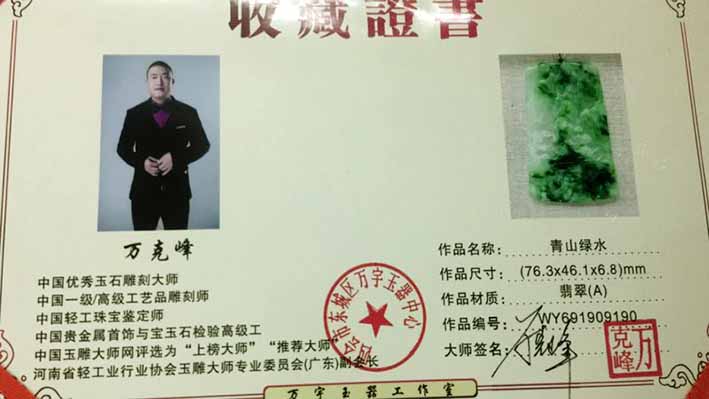 收藏證書
万克峰
中国优秀玉石雕刻大师
中国一级/高级工艺品雕刻师
中国轻工珠宝鉴定师
中国贵金属首饰与宝玉石检验高级工
中国玉雕大师网评选为“上榜大师”“推荐大师”
河南省轻工业行业协会玉雕大师专业委员会(广东)副会长
作品名称： 青山绿水
作品尺寸： (76.3x46.1x6.8)mm
作品材质： 翡翠(A)
作品编号： WY691909190
大师签名：
会市东城区万宇玉器中心
万克峰
万宇玉器工作室